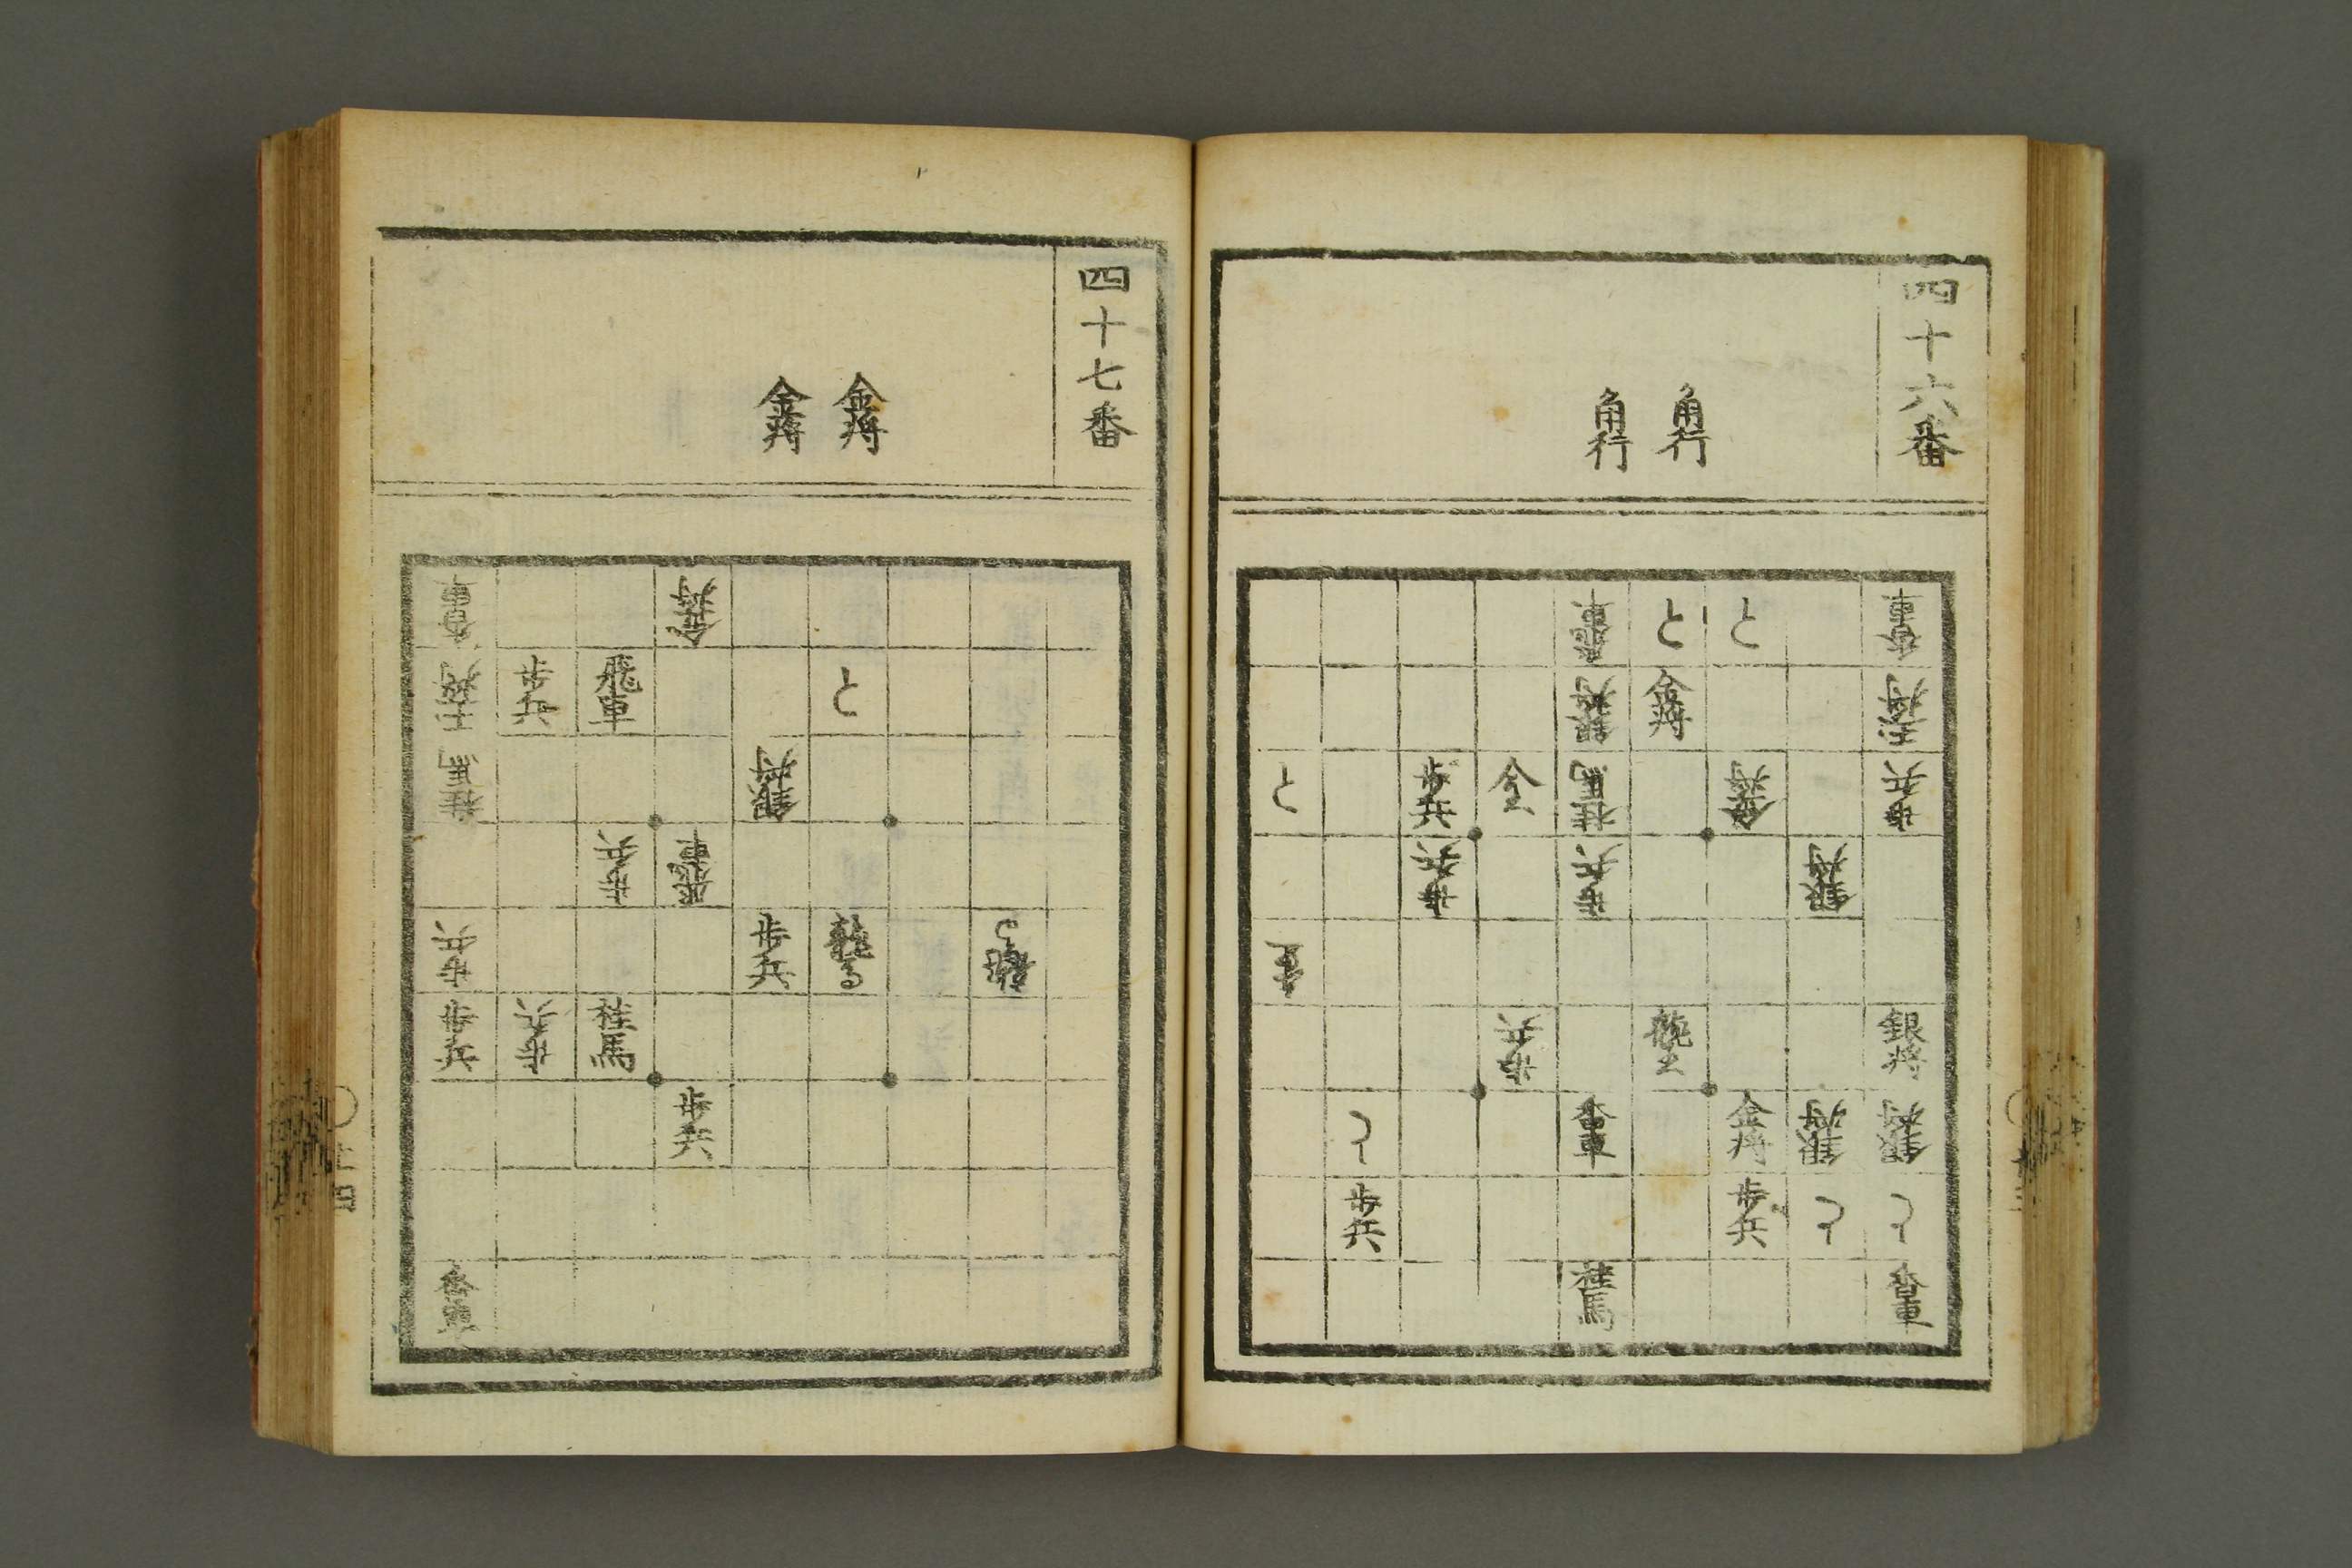 四十六番
角行 角行
香車 と と 飛車
玉将 金将 銀将
歩兵 金将 桂馬 全 歩兵 と
銀将 歩兵 歩兵
銀将 龍王 歩兵
銀将 銀将 金将 香車 と
と と 歩兵 歩兵
香車 桂馬
四十七番
金将 金将
金将 香車
と 飛車 歩兵 玉将
銀将 桂馬
飛車 歩兵
龍馬 歩兵 歩兵
桂馬 歩兵 歩兵
歩兵
香車